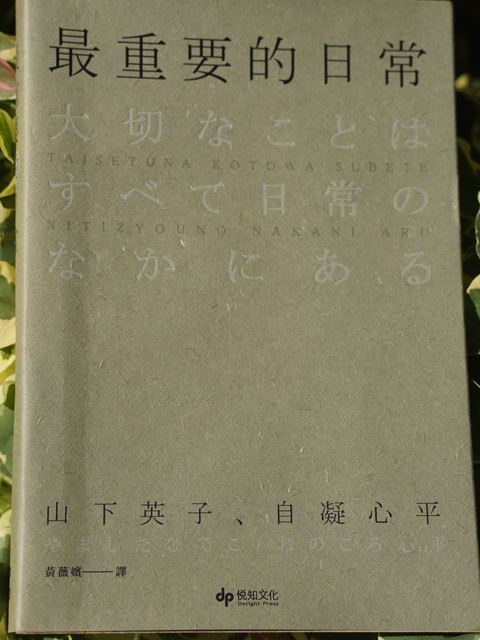 最重要的日常
大切なことは
TAISETUNA KOTOWA SUBETE
すべて日常の
NITIZYOUNO NAKANI ARU
なかにある
山下英子、自凝心平
やましたひでこ おのころ心平
黃薇嬪——譯
dp 悦知文化
Delight Press